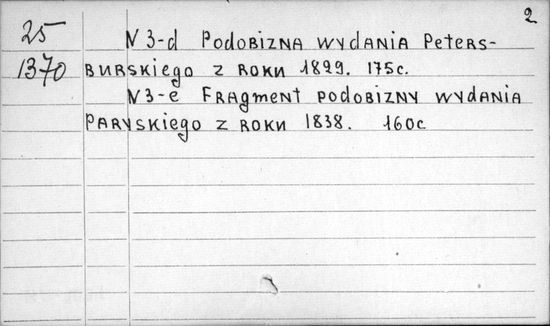 2
25
1370
N 3-d Podobizna wydania Peters-
burskiego z roku 1829. 175c.
N3-e Fragment podobizny wydania
Paryskiego z roku 1838. 160c